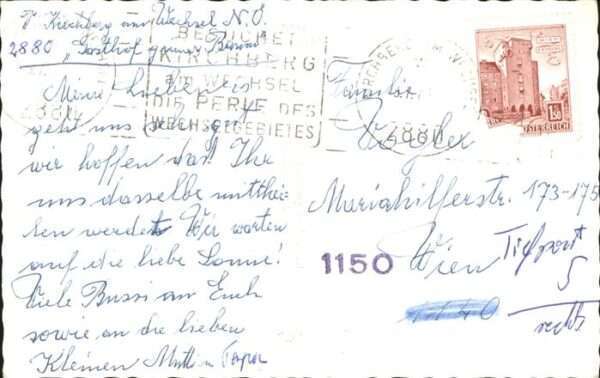 Kirchberg am Wechsel N.Ö.
2880 "Gasthof grüner Baum"
BESUCHET
KIRCHBERG
am WECHSEL
DIE PERLE DES
WECHSELGEBIETES
KIRCHBERG A. WECHSEL
2880
1.50
ÖSTERREICH
Meine Lieben! Es
geht uns sehr gut
wir hoffen daß Ihr
uns dasselbe mitthei-
len werdet. Wir warten
auf die liebe Sonne!
Viele Bussi an Euch
sowie an die lieben
Kleinen Mutti u. Papa
Familie
Mariahilferstr. 173-175
1150 Wien
1140
5
rechts